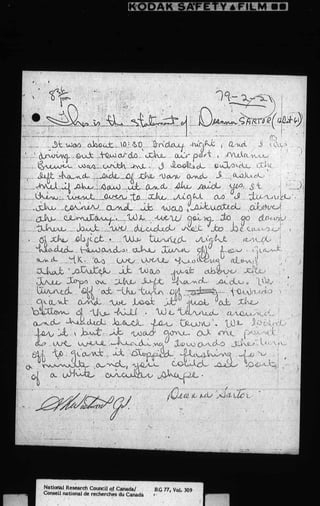 KODAK SAFETY FILM
79-2-21
This is the statement of Deanna SARTOR
It was about 10:30 Friday night, and I was
driving out towards the air port. Melanie
was with me. I looked outside the
left hand side of the van and I asked
Mel if she saw it and she said yes. It
then went over to the right as I turned
the corner and it was situated above
the cemetary. We were going to go down
there but we decided not to because
of the object. We turned right and
headed towards the turn off for Giant
and YK. as we were heading along
that stretch it was just above the
tree tops on the left hand side. We
turned off at the turn of towards
giant and we lost it just at the
bottom of the hill. We turned around
and headed back for town. We looked
for it, but it was gone. At one point
as we were heading towards the turn
off to giant, it stopped flashing for
a minute and, you could see sort
of a white circular shape.
Deanna Sartor
National Research Council of Canada/
Conseil national de recherches du Canada
RG 77, Vol. 309